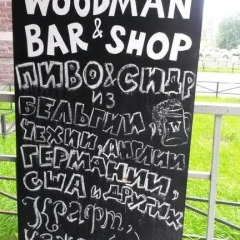 WOODMAN
BAR & SHOP
ПИВО&СИДР
ИЗ
БЕЛЬГИИ,
W
ЧЕХИИ, АНГЛИИ
ГЕРМАНИИ,
США И ДРУГИХ
Крафт,